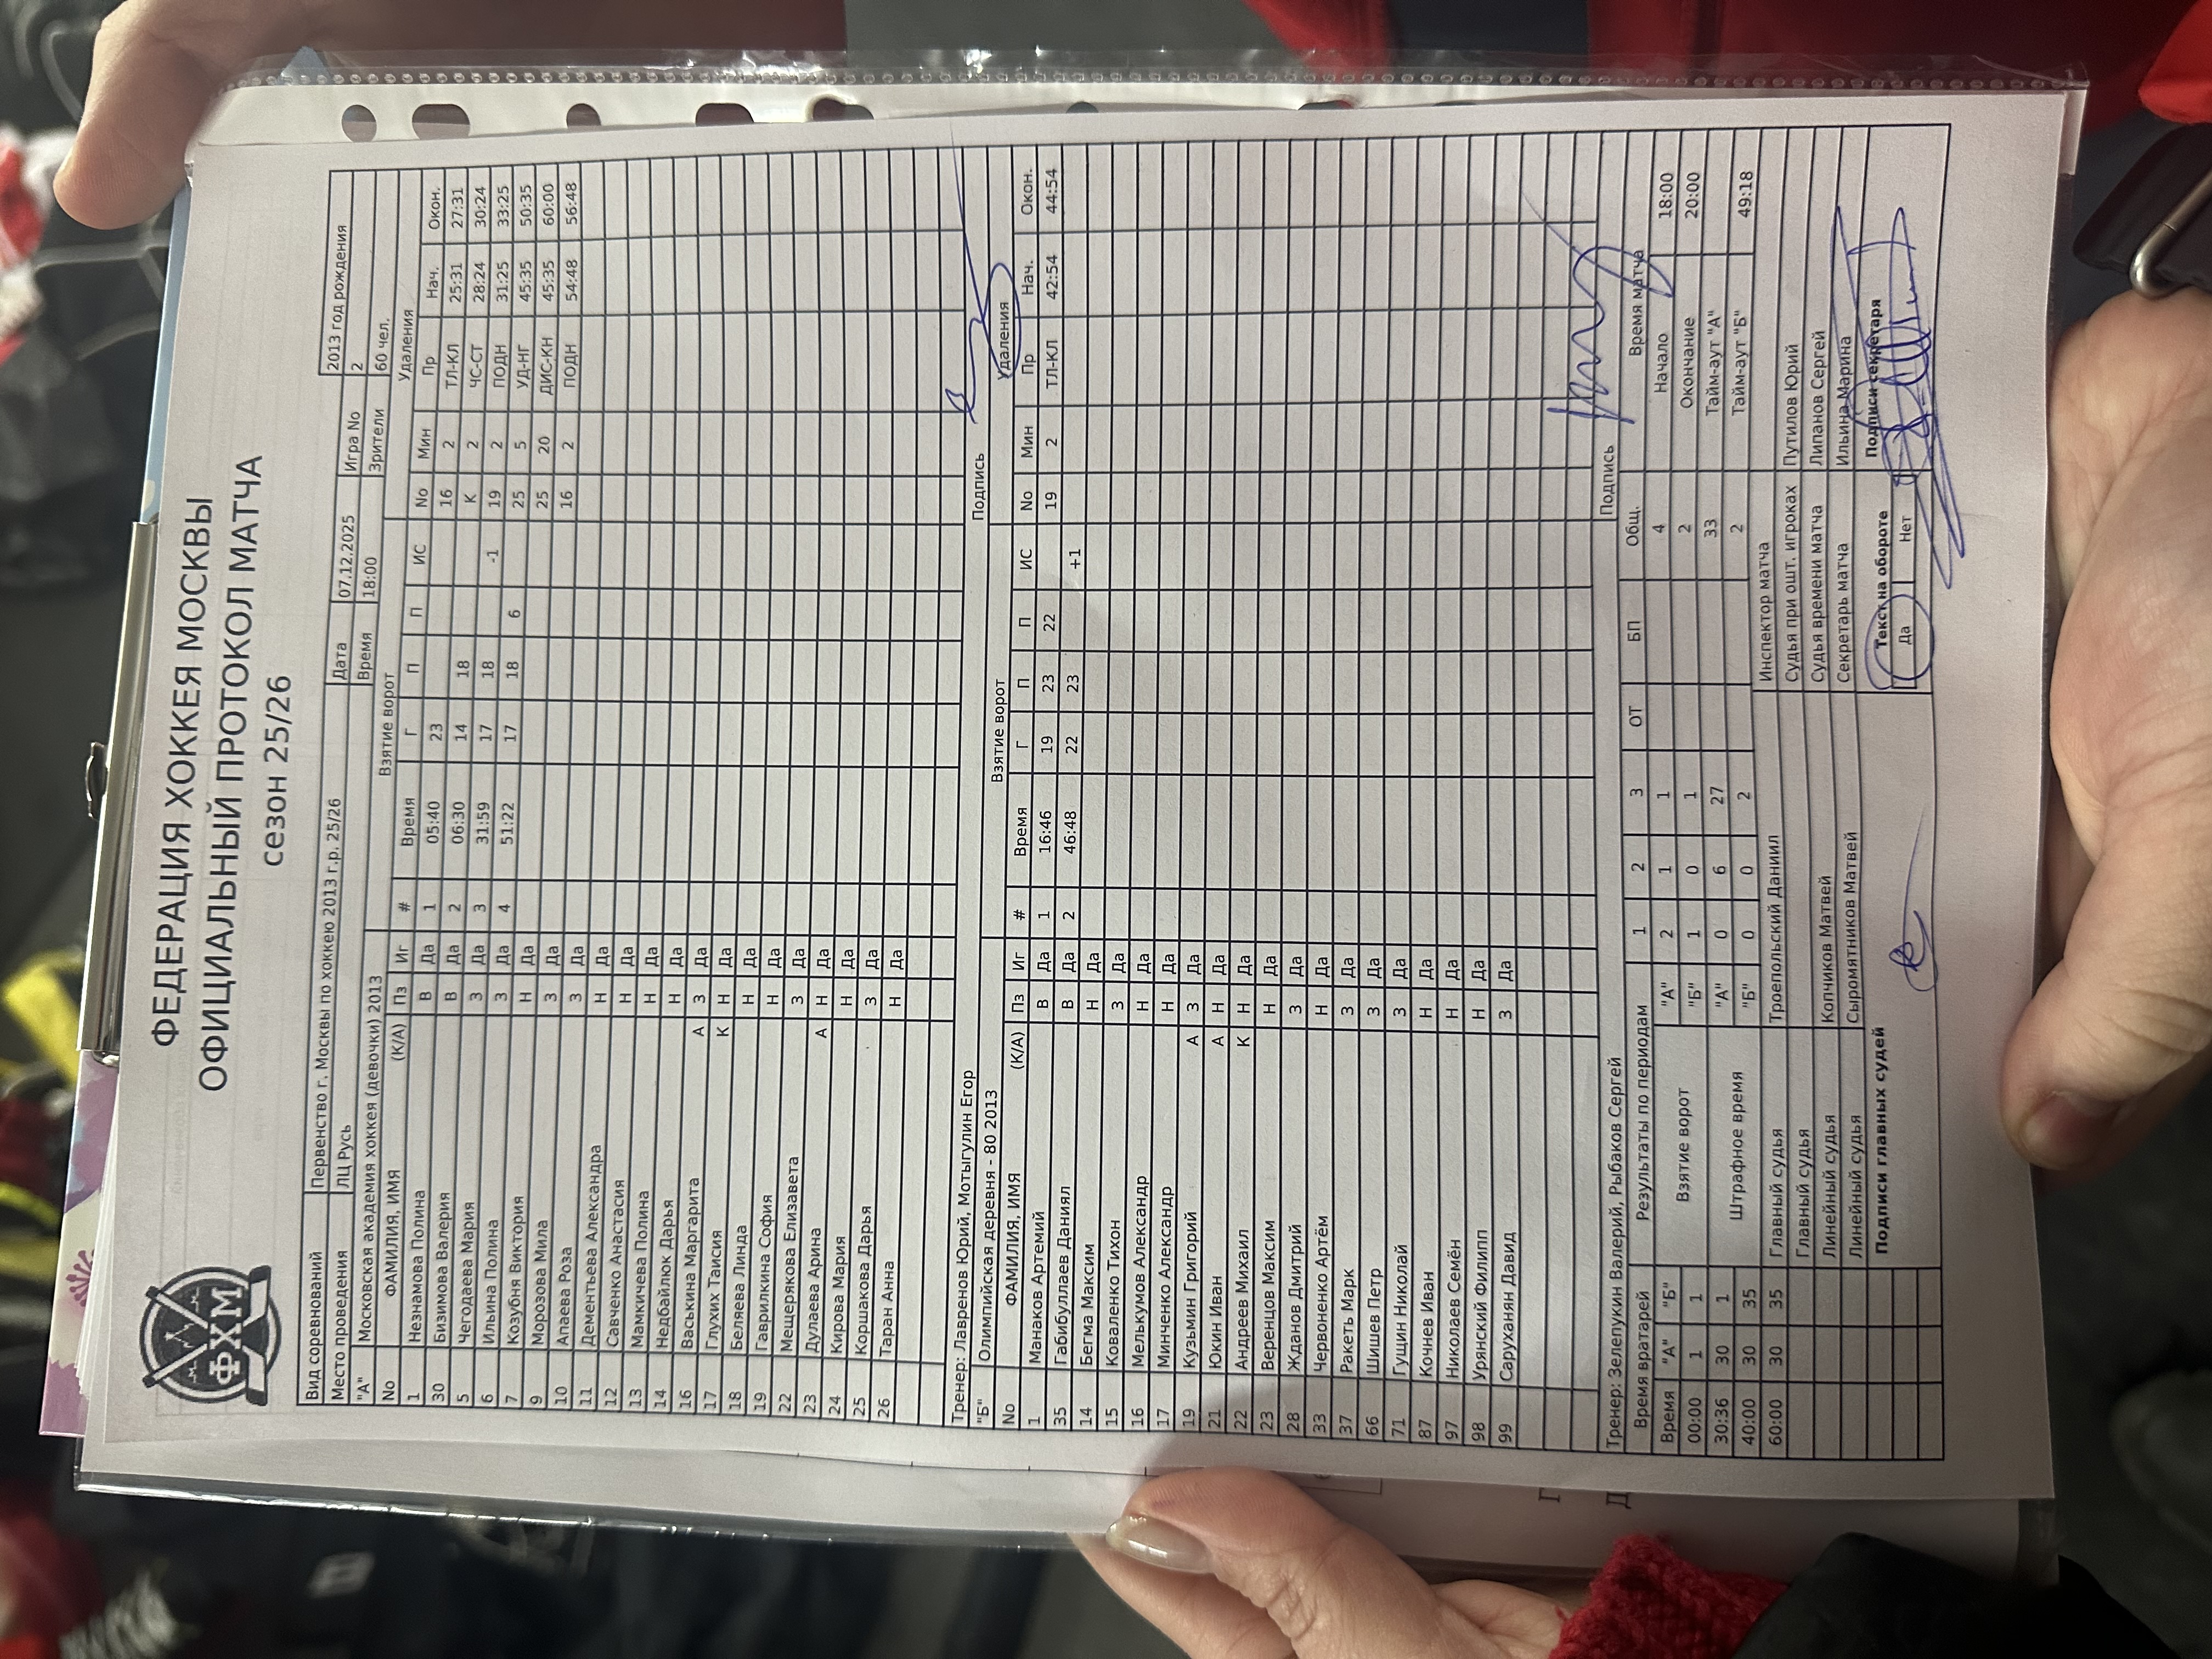 ФХМ
ФЕДЕРАЦИЯ ХОККЕЯ МОСКВЫ
ОФИЦИАЛЬНЫЙ ПРОТОКОЛ МАТЧА
сезон 25/26
Вид соревнований Первенство г. Москвы по хоккею 2013 г.р. 25/26 Дата 07.12.2025 Игра No 2013 год рождения 2
Место проведения ЛЦ Русь Время 18:00 Зрители 60 чел.
"А" Московская академия хоккея (девочки) 2013 Взятие ворот Удаления
No ФАМИЛИЯ, ИМЯ (К/А) Пз Иг # Время Г П П ИС No Мин Пр Нач. Окон.
1 Незнамова Полина В Да 1 05:40 23 16 2 ТЛ-КЛ 25:31 27:31
30 Бизимова Валерия В Да 2 06:30 14 18 К 2 ЧС-СТ 28:24 30:24
5 Чегодаева Мария З Да 3 31:59 17 18 -1 19 2 ПОДН 31:25 33:25
6 Ильина Полина З Да 4 51:22 17 18 6 25 5 УД-НГ 45:35 50:35
7 Козубня Виктория Н Да 25 20 ДИС-КН 45:35 60:00
9 Морозова Мила З Да 16 2 ПОДН 54:48 56:48
10 Апаева Роза З Да
11 Дементьева Александра Н Да
12 Савченко Анастасия Н Да
13 Мамкичева Полина Н Да
14 Недбайлюк Дарья Н Да
16 Васькина Маргарита А З Да
17 Глухих Таисия К Н Да
18 Беляева Линда Н Да
19 Гаврилкина София Н Да
22 Мещерякова Елизавета З Да
23 Дулаева Арина А Н Да
24 Кирова Мария Н Да
25 Коршакова Дарья З Да
26 Таран Анна Н Да
Тренер: Лавренов Юрий, Мотыгулин Егор Подпись
"Б" Олимпийская деревня - 80 2013 Взятие ворот Удаления
No ФАМИЛИЯ, ИМЯ (К/А) Пз Иг # Время Г П П ИС No Мин Пр Нач. Окон.
1 Манаков Артемий В Да 1 16:46 19 23 22 19 2 ТЛ-КЛ 42:54 44:54
35 Габибуллаев Даниял В Да 2 46:48 22 23 +1
14 Бегма Максим Н Да
15 Коваленко Тихон З Да
16 Мелькумов Александр Н Да
17 Минченко Александр Н Да
19 Кузьмин Григорий А З Да
21 Юкин Иван А Н Да
22 Андреев Михаил К Н Да
23 Веренцов Максим Н Да
28 Жданов Дмитрий З Да
33 Червоненко Артём Н Да
37 Ракеть Марк З Да
66 Шишев Петр З Да
71 Гущин Николай З Да
87 Кочнев Иван Н Да
97 Николаев Семён Н Да
98 Урянский Филипп Н Да
99 Саруханян Давид З Да
Тренер: Зелепукин Валерий, Рыбаков Сергей Подпись
Время вратарей Результаты по периодам 1 2 3 ОТ БП Общ. Время матча
Время "А" "Б" Взятие ворот "А" 2 1 1 4 Начало 18:00
00:00 1 1 "Б" 1 0 1 2 Окончание 20:00
30:36 30 1 Штрафное время "А" 0 6 27 33 Тайм-аут "А"
40:00 30 35 "Б" 0 0 2 2 Тайм-аут "Б" 49:18
60:00 30 35 Главный судья Троепольский Даниил Инспектор матча
Главный судья Судья при ошт. игроках Путилов Юрий
Линейный судья Копчиков Матвей Судья времени матча Липанов Сергей
Линейный судья Сыромятников Матвей Секретарь матча Ильина Марина
Подписи главных судей Текст на обороте Подписи секретаря
Да Нет